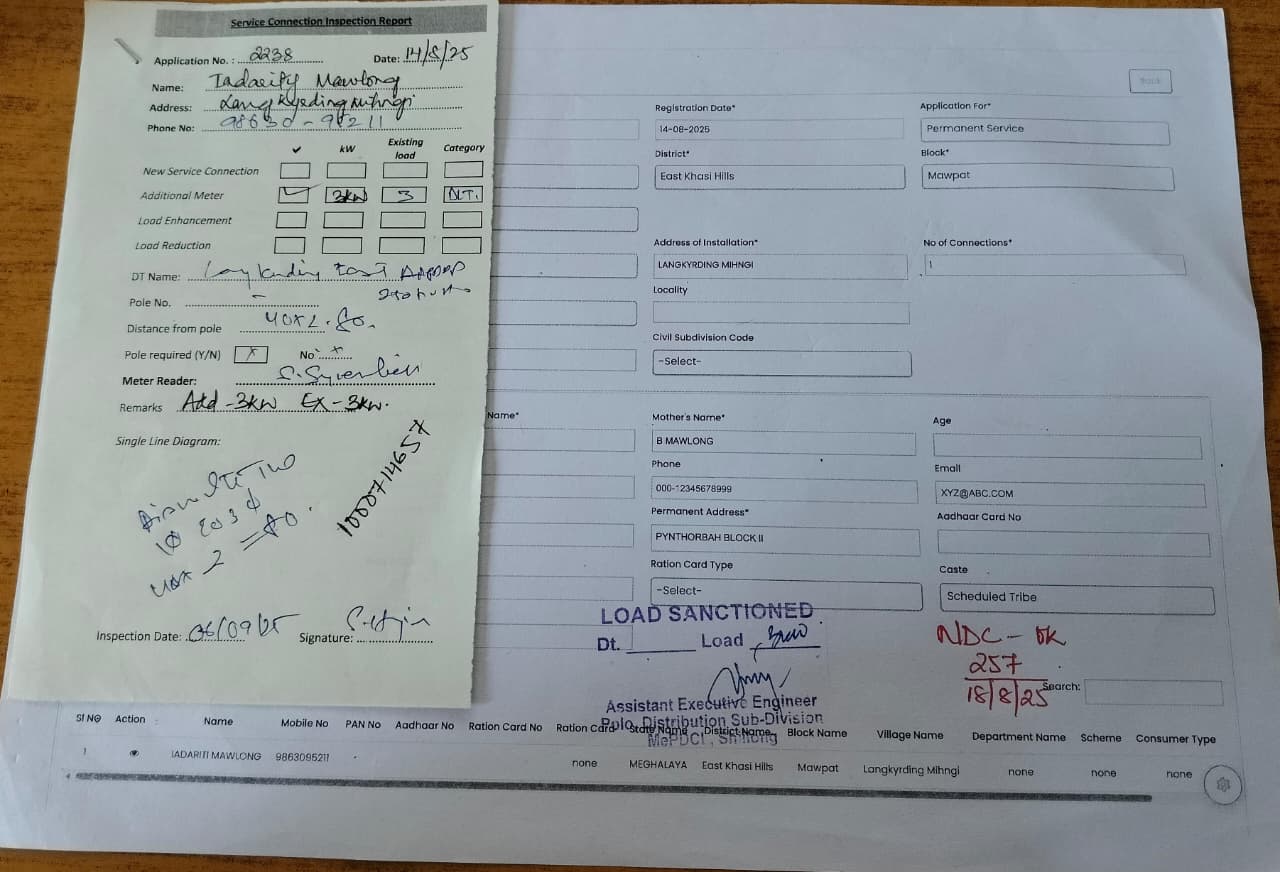 Service Connection Inspection Report
Application No. : 2238 Date: 14/8/25
Name: Mawlong
Address:
Phone No: 98630-95211
✓ kW Existing load Category
New Service Connection
Additional Meter ✓ 3kW 3 DLT.
Load Enhancement
Load Reduction
DT Name: East
Pole No. -
Distance from pole 40x2. 80.
Pole required (Y/N) x No x
Meter Reader:
Remarks Add-3kw Ex-3kw.
Single Line Diagram:
1000714657
40x 2 = 80.
Inspection Date: 06/09/25 Signature:
Back
Registration Date* Application For*
14-08-2025 Permanent Service
District* Block*
East Khasi Hills Mawpat
Address of Installation* No of Connections*
LANGKYRDING MIHNGI 1
Locality
Civil Subdivision Code
-Select-
Name* Mother's Name* Age
B MAWLONG
Phone Email
000-12345678999 XYZ@ABC.COM
Permanent Address* Aadhaar Card No
PYNTHORBAH BLOCK II
Ration Card Type Caste
-Select- Scheduled Tribe
LOAD SANCTIONED
Dt. Load 3kw
Assistant Executive Engineer
Polo, Distribution Sub-Division
MePDCL, Shillong
NDC - ok
257
18/8/25
Search:
Sl NO Action Name Mobile No PAN No Aadhaar No Ration Card No Ration Card State Name District Name Block Name Village Name Department Name Scheme Consumer Type
1 IADARITI MAWLONG 9863095211 none MEGHALAYA East Khasi Hills Mawpat Langkyrding Mihngi none none none